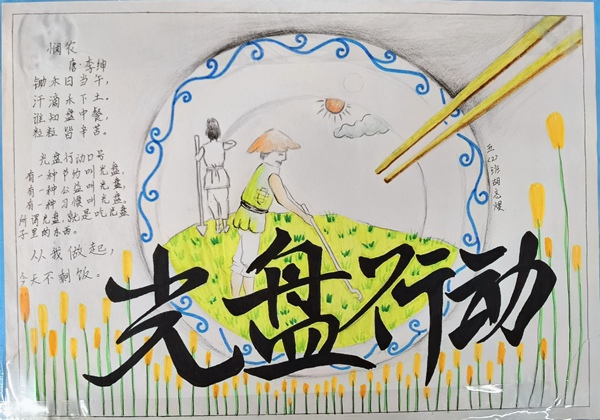 悯农
唐·李绅
锄禾日当午,
汗滴禾下土。
谁知盘中餐,
粒粒皆辛苦。
光盘行动口号
有一种节约叫光盘,
有一种公益叫光盘,
有一种习惯叫光盘,
所谓光盘,就是吃光盘
子里的东西。
从我做起,
今天不剩饭。
五(2)班胡志
光盘行动